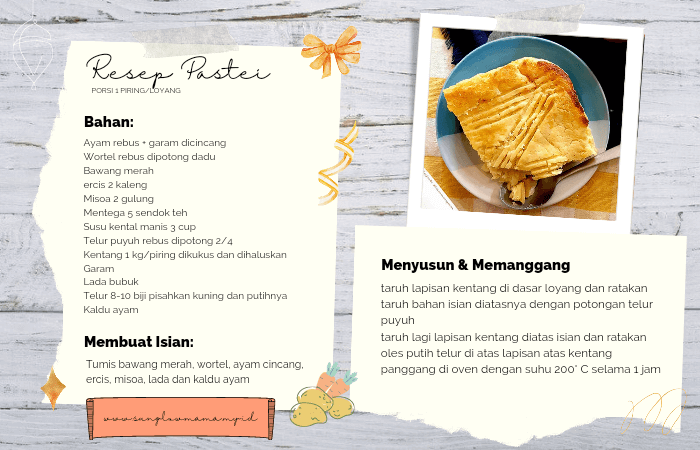 Resep Pastei
PORSI 1 PIRING/LOYANG
Bahan:
Ayam rebus + garam dicincang
Wortel rebus dipotong dadu
Bawang merah
ercis 2 kaleng
Misoa 2 gulung
Mentega 5 sendok teh
Susu kental manis 3 cup
Telur puyuh rebus dipotong 2/4
Kentang 1 kg/piring dikukus dan dihaluskan
Garam
Lada bubuk
Telur 8-10 biji pisahkan kuning dan putihnya
Kaldu ayam
Membuat Isian:
Tumis bawang merah, wortel, ayam cincang,
ercis, misoa, lada dan kaldu ayam
www.sungluwmamamy.id
Menyusun & Memanggang
taruh lapisan kentang di dasar loyang dan ratakan
taruh bahan isian diatasnya dengan potongan telur
puyuh
taruh lagi lapisan kentang diatas isian dan ratakan
oles putih telur di atas lapisan atas kentang
panggang di oven dengan suhu 200° C selama 1 jam